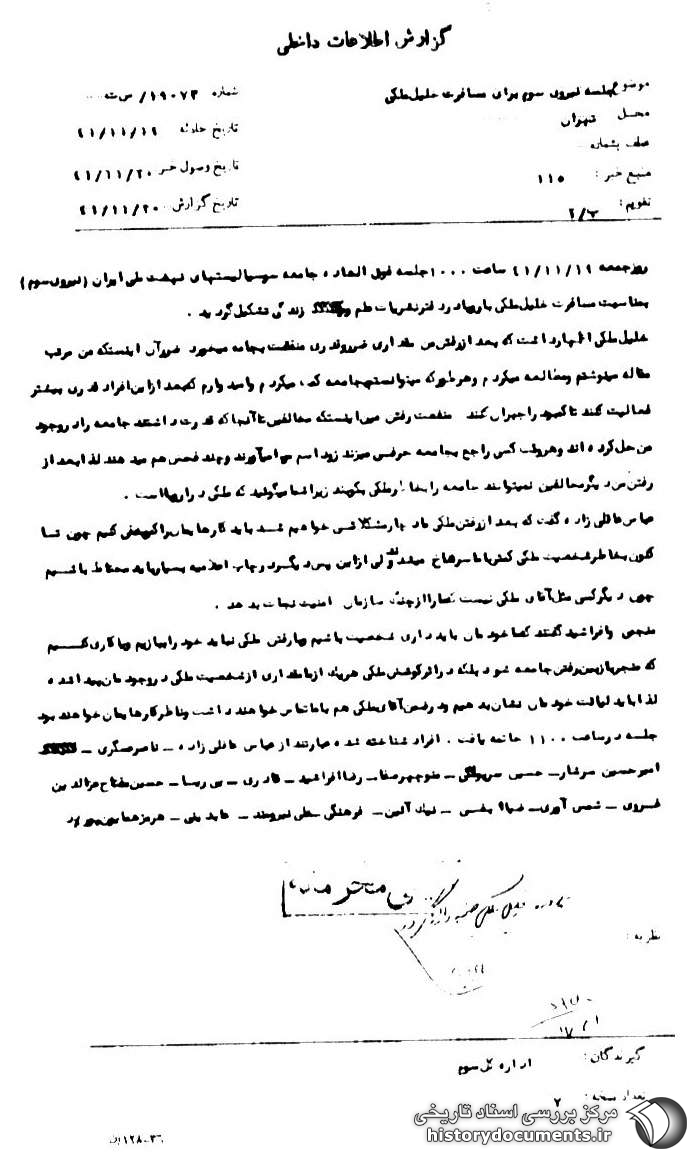 گزارش اطلاعات داخلی
موضوع جلسه نیروی سوم برای مسافرت خلیل ملکی
شماره ۱۹۰۷۳/ س ت
محل تهران
تاریخ حادثه ۴۱/۱۱/۱۹
عطف بشماره
تاریخ وصول خبر ۴۱/۱۱/۲۰
منبع خبر: ۱۱۵
تاریخ گزارش ۴۱/۱۱/۲۰
تقویم: ب/۲
روز جمعه ۴۱/۱۱/۱۹ ساعت ۱۰۰۰ جلسه فوق العاده جامعه سوسیالیستهای نهضت ملی ایران (نیروی سوم)
بمناسبت مسافرت خلیل ملکی باروپا در دفتر نشریات علم و زندگی تشکیل گردید .
خلیل ملکی اظهار داشت که بعد از رفتن من مقداری ضرر و قدری منفعت بجامعه میخورد ضرر آن اینستکه من مرتب
مقاله مینوشتم و مطالعه میکردم و هر طور که میتوانستم بجامعه کمک میکردم و امیدوارم که بعد از این افراد قدری بیشتر
فعالیت کنند تا کمبود را جبران کنند منفعت رفتن من اینستکه مخالفین تا آنجا که قدرت داشتند جامعه را در وجود
من حل کرده اند و هر وقت کسی راجع بجامعه حرفی میزند زود اسم مرا میآورند و چند فحش هم میدهند لذا بعد از
رفتن من دیگر مخالفین نمیتوانند جامعه را بخاطر ملکی بکوبند زیرا شما میگوئید که ملکی در اروپا است .
عباس عاقلی زاده گفت که بعد از رفتن ملکی ما دچار مشکلاتی خواهیم شد باید کارهایمان را کمی مخفی کنیم چون تا
کنون بخاطر شخصیت ملکی کمتر با ما سرشاخ میشدند ولی از این پس دیگر در چاپ اعلامیه بسیار باید محتاط باشیم
چون دیگر کسی مثل آقای ملکی نیست که ما را از چنگ سازمان امنیت نجات بدهد .
منجمی و افراشید گفتند که ما خودمان باید دارای شخصیت باشیم و با رفتن ملکی نباید خود را ببازیم و یا کاری کنیم
که منجر بازبین رفتن جامعه شود بلکه در اثر کوشش ملکی هر یک از ما مقداری از شخصیت ملکی در وجودمان پیدا شده
لذا باید لیاقت خودمان نشان بدهیم و در ضمن آقای ملکی هم با ما تماس خواهند داشت و ناظر کارهایمان خواهند بود
جلسه در ساعت ۱۱۰۰ خاتمه یافت . افراد شناخته شده عبارتند از عباس عاقلی زاده – ناصر عسگری –
امیر حسین سرشار – حسین – منوچهر صفا – رضا افراشید – قادری – – حسین مفتاح عزالدین
خسروی – شمس آوری – ضیاء – نیک آئین – فرهنگی – علی نیرومند – عابدینی – هرمز همایون پور
نظریه :
گیرندگان: اداره کل سوم
تعداد نسخه: ۲
مرکز بررسی اسناد تاریخی
historydocuments.ir